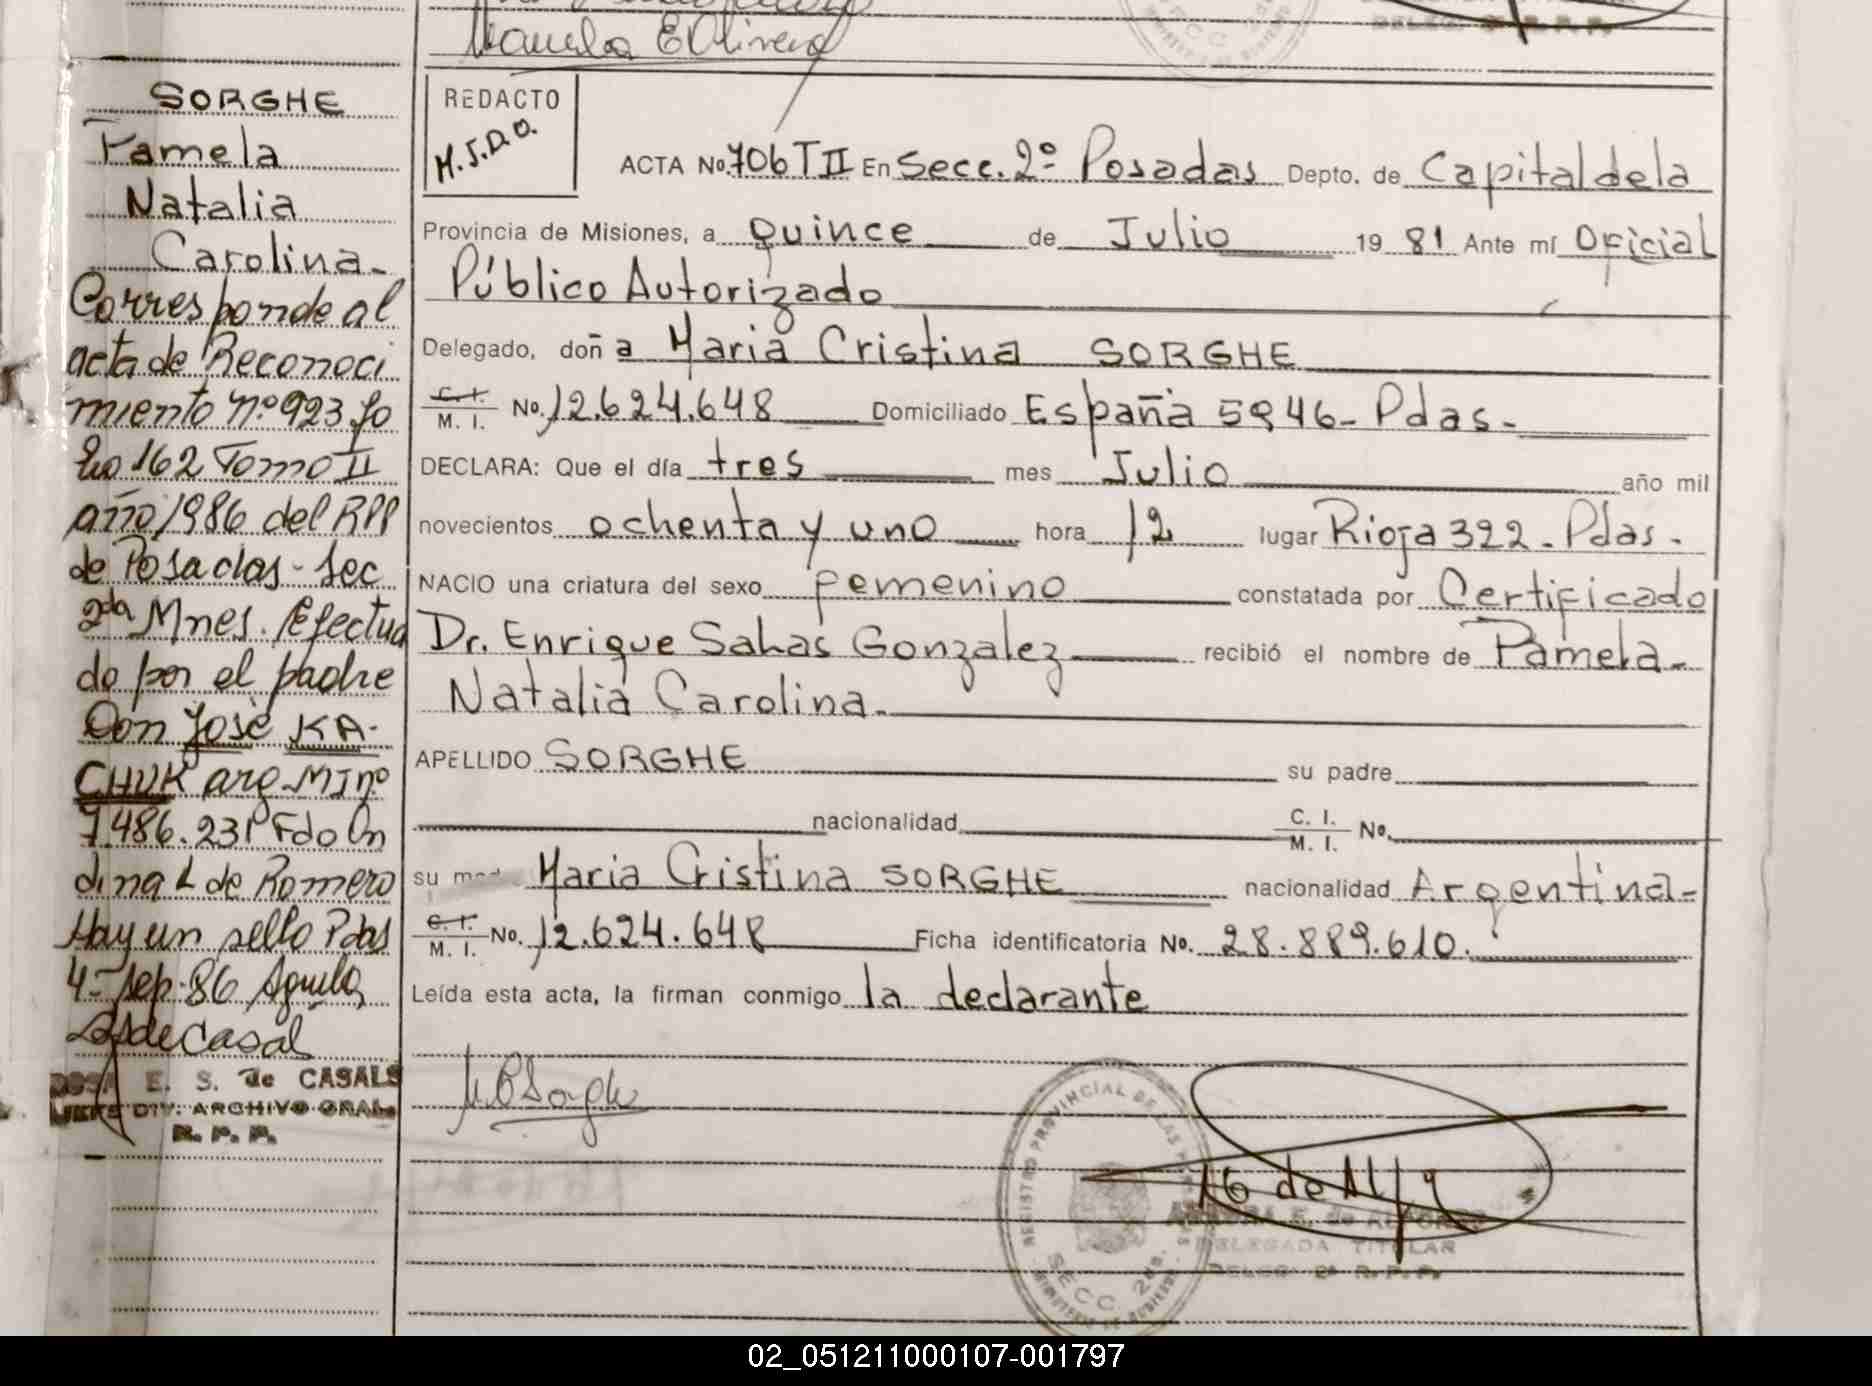 Manuela E Olivera
SORGHE
Pamela
Natalia
Carolina-
Corresponde al
acta de Reconoci
miento nº 923 fo
lio 162 Tomo II
año 1986 del RPP
de Posadas - Sec
2da Mnes. Efectua
do por el padre
Don José KA-
CHUK arg. MI nº
7.486.231 Fdo On
dina L de Romero
Hay un sello Pdas
4-sep-86
de Casal
ROSA E. S. de CASALS
JEFE DIV. ARCHIVO GRAL.
R. P. P.
REDACTO
M.J.D.O.
ACTA No. 706 T II En Secc. 2º Posadas Depto. de Capital de la
Provincia de Misiones, a quince de Julio 19 81 Ante mí Oficial
Público Autorizado
Delegado, doña Maria Cristina SORGHE
C. I. M. I. No. 12.624.648 Domiciliado España 5946- Pdas-
DECLARA: Que el día tres mes Julio año mil
novecientos ochenta y uno hora 12 lugar Rioja 322- Pdas.
NACIO una criatura del sexo femenino constatada por Certificado
Dr. Enrique Sahas Gonzalez recibió el nombre de Pamela-
Natalia Carolina.
APELLIDO SORGHE su padre
nacionalidad C. I. M. I. No.
su mad Maria Cristina SORGHE nacionalidad Argentina-
C. I. M. I. No. 12.624.648 Ficha identificatoria No. 28.889.610.
Leída esta acta, la firman conmigo la declarante
M C Sorghe
REGISTRO PROVINCIAL DE LAS
SECC. 2da.
MINISTERIO DE GOBIERNO
DELEGADA TITULAR
DELEG. 2ª R. P. P.
02_051211000107-001797